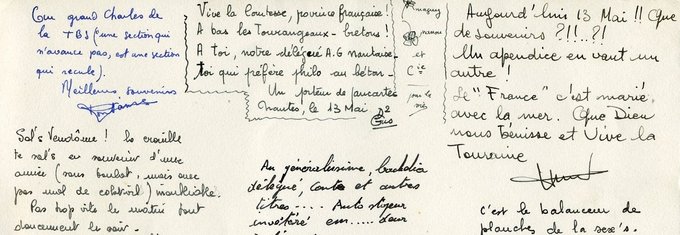 Au grand Charles de
la TB3 (une section qui
n'avance pas, est une section
qui recule).
Meilleurs souvenirs
Vive la Comtesse, province française!
A bas les Tourangeaux - bretons!
A toi, notre délégué A.G nantaise
toi qui préfère philo au béton.
Un porteur de pancartes
Nantes, le 13 Mai
Gus
et
Cie
Aujourd'hui 13 Mai!! Que
de souvenirs ?!!..?!
Un apendice en vaut un
autre!
Le "France" c'est marié
avec la mer. Que Dieu
nous bénisse et Vive la
Touraine
Sal's Vendôme! La
te sal's en souvenir d'une
année (sans boulot, mais avec
pas mal de
Pas trop vite le matin tout
doucement le soir.
Au généralissime,
délégué, et autres
titres.... Auto stopeur
invétéré em.....deur
c'est le balanceur de
planches de la